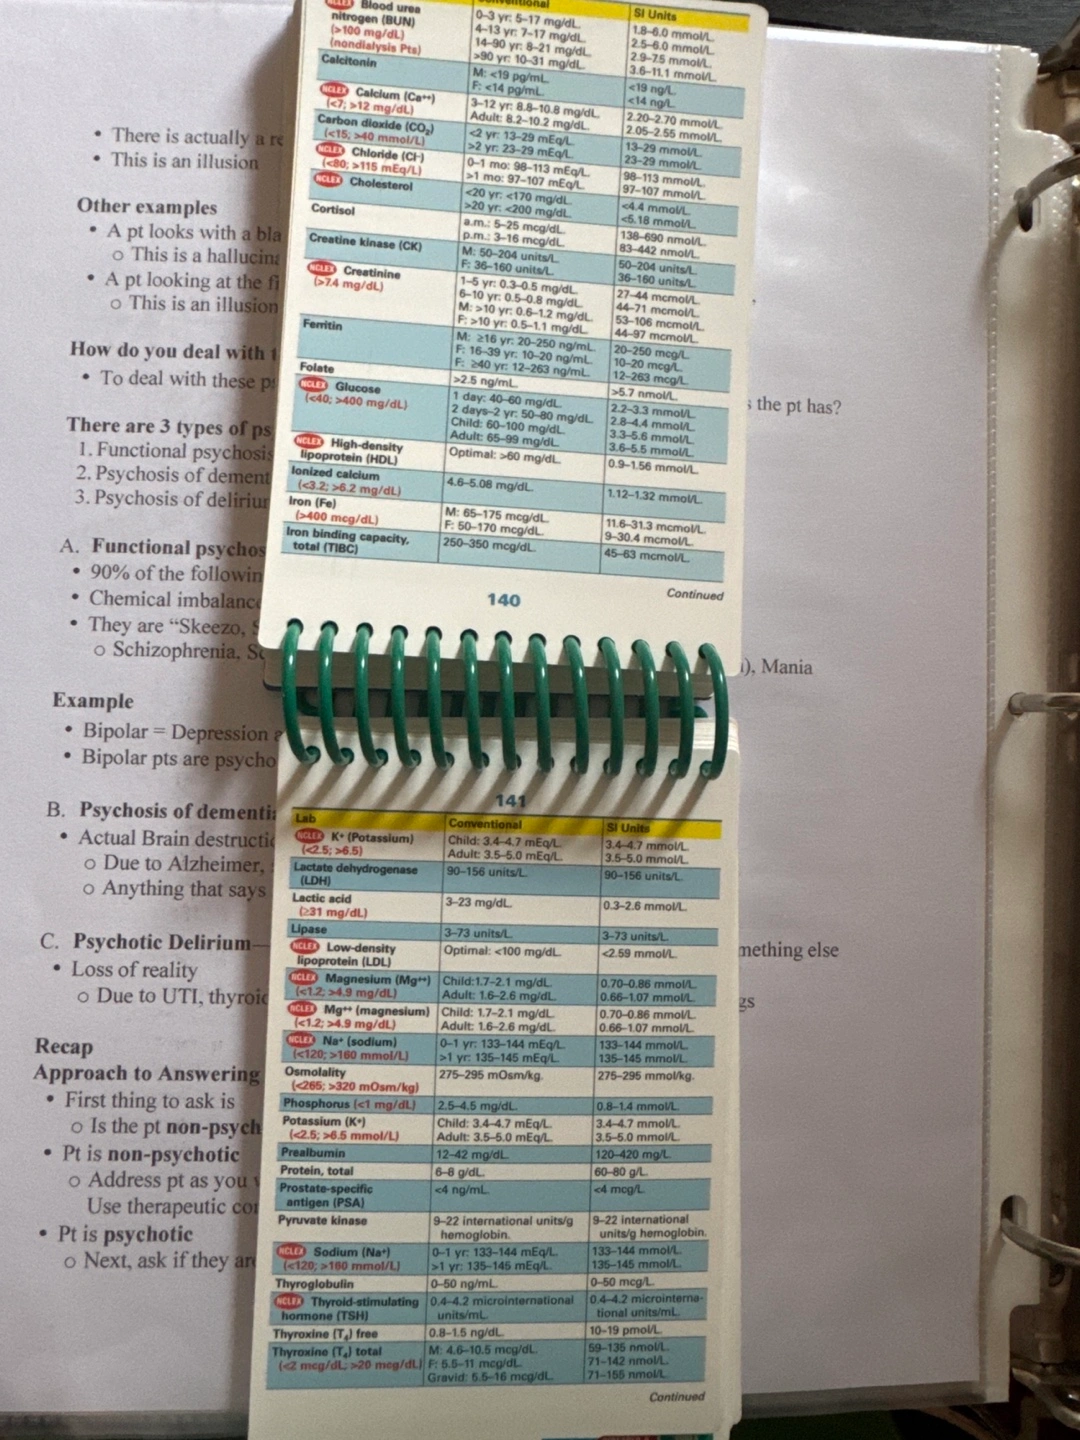 Conventional
SI Units
NCLEX Blood urea
nitrogen (BUN)
(>100 mg/dL)
(nondialysis Pts)
0–3 yr: 5–17 mg/dL.
4–13 yr: 7–17 mg/dL.
14–90 yr: 8–21 mg/dL.
>90 yr: 10–31 mg/dL.
1.8–6.0 mmol/L.
2.5–6.0 mmol/L.
2.9–7.5 mmol/L.
3.6–11.1 mmol/L.
Calcitonin
M: <19 pg/mL.
F: <14 pg/mL.
<19 ng/L.
<14 ng/L.
NCLEX Calcium (Ca++)
(<7; >12 mg/dL)
3–12 yr: 8.8–10.8 mg/dL.
Adult: 8.2–10.2 mg/dL.
2.20–2.70 mmol/L.
2.05–2.55 mmol/L.
Carbon dioxide (CO2)
(<15; >40 mmol/L)
<2 yr: 13–29 mEq/L.
>2 yr: 23–29 mEq/L.
13–29 mmol/L.
23–29 mmol/L.
NCLEX Chloride (Cl-)
(<80; >115 mEq/L)
0–1 mo: 98–113 mEq/L.
>1 mo: 97–107 mEq/L.
98–113 mmol/L.
97–107 mmol/L.
NCLEX Cholesterol
<20 yr: <170 mg/dL.
>20 yr: <200 mg/dL.
<4.4 mmol/L.
<5.18 mmol/L.
Cortisol
a.m.: 5–25 mcg/dL.
p.m.: 3–16 mcg/dL.
138–690 nmol/L.
83–442 nmol/L.
Creatine kinase (CK)
M: 50–204 units/L.
F: 36–160 units/L.
50–204 units/L.
36–160 units/L.
NCLEX Creatinine
(>7.4 mg/dL)
1–5 yr: 0.3–0.5 mg/dL.
6–10 yr: 0.5–0.8 mg/dL.
M: >10 yr: 0.6–1.2 mg/dL.
F: >10 yr: 0.5–1.1 mg/dL.
27–44 mcmol/L.
44–71 mcmol/L.
53–106 mcmol/L.
44–97 mcmol/L.
Ferritin
M: ≥16 yr: 20–250 ng/mL.
F: 16–39 yr: 10–20 ng/mL.
F: ≥40 yr: 12–263 ng/mL.
20–250 mcg/L.
10–20 mcg/L.
12–263 mcg/L.
Folate
>2.5 ng/mL.
>5.7 nmol/L.
NCLEX Glucose
(<40; >400 mg/dL)
1 day: 40–60 mg/dL.
2 days–2 yr: 50–80 mg/dL.
Child: 60–100 mg/dL.
Adult: 65–99 mg/dL.
2.2–3.3 mmol/L.
2.8–4.4 mmol/L.
3.3–5.6 mmol/L.
3.6–5.5 mmol/L.
NCLEX High-density
lipoprotein (HDL)
Optimal: >60 mg/dL.
0.9–1.56 mmol/L.
Ionized calcium
(<3.2; >6.2 mg/dL)
4.6–5.08 mg/dL.
1.12–1.32 mmol/L.
Iron (Fe)
(>400 mcg/dL)
M: 65–175 mcg/dL.
F: 50–170 mcg/dL.
11.6–31.3 mcmol/L.
9–30.4 mcmol/L.
Iron binding capacity,
total (TIBC)
250–350 mcg/dL.
45–63 mcmol/L.
Continued
140
141
Lab
Conventional
SI Units
NCLEX K+ (Potassium)
(<2.5; >6.5)
Child: 3.4–4.7 mEq/L.
Adult: 3.5–5.0 mEq/L.
3.4–4.7 mmol/L.
3.5–5.0 mmol/L.
Lactate dehydrogenase
(LDH)
90–156 units/L.
90–156 units/L.
Lactic acid
(≥31 mg/dL)
3–23 mg/dL.
0.3–2.6 mmol/L.
Lipase
3–73 units/L.
3–73 units/L.
NCLEX Low-density
lipoprotein (LDL)
Optimal: <100 mg/dL.
<2.59 mmol/L.
NCLEX Magnesium (Mg++)
(<1.2; >4.9 mg/dL)
Child:1.7–2.1 mg/dL.
Adult: 1.6–2.6 mg/dL.
0.70–0.86 mmol/L.
0.66–1.07 mmol/L.
NCLEX Mg++ (magnesium)
(<1.2; >4.9 mg/dL)
Child: 1.7–2.1 mg/dL.
Adult: 1.6–2.6 mg/dL.
0.70–0.86 mmol/L.
0.66–1.07 mmol/L.
NCLEX Na+ (sodium)
(<120; >160 mmol/L)
0–1 yr: 133–144 mEq/L.
>1 yr: 135–145 mEq/L.
133–144 mmol/L.
135–145 mmol/L.
Osmolality
(<265; >320 mOsm/kg)
275–295 mOsm/kg.
275–295 mmol/kg.
Phosphorus (<1 mg/dL)
2.5–4.5 mg/dL.
0.8–1.4 mmol/L.
Potassium (K+)
(<2.5; >6.5 mmol/L)
Child: 3.4–4.7 mEq/L.
Adult: 3.5–5.0 mEq/L.
3.4–4.7 mmol/L.
3.5–5.0 mmol/L.
Prealbumin
12–42 mg/dL.
120–420 mg/L.
Protein, total
6–8 g/dL.
60–80 g/L.
Prostate-specific
antigen (PSA)
<4 ng/mL.
<4 mcg/L.
Pyruvate kinase
9–22 international units/g
hemoglobin.
9–22 international
units/g hemoglobin.
NCLEX Sodium (Na+)
(<120; >160 mmol/L)
0–1 yr: 133–144 mEq/L.
>1 yr: 135–145 mEq/L.
133–144 mmol/L.
135–145 mmol/L.
Thyroglobulin
0–50 ng/mL.
0–50 mcg/L.
NCLEX Thyroid-stimulating
hormone (TSH)
0.4–4.2 microinternational
units/mL.
0.4–4.2 microinterna-
tional units/mL.
Thyroxine (T4) free
0.8–1.5 ng/dL.
10–19 pmol/L.
Thyroxine (T4) total
(<2 mcg/dL; >20 mcg/dL)
M: 4.6–10.5 mcg/dL.
F: 5.5–11 mcg/dL.
Gravid: 5.5–16 mcg/dL.
59–135 nmol/L.
71–142 nmol/L.
71–155 nmol/L.
Continued
• There is actually a re
• This is an illusion
Other examples
• A pt looks with a bla
o This is a hallucina
• A pt looking at the fi
o This is an illusion
How do you deal with t
• To deal with these p
s the pt has?
There are 3 types of ps
1. Functional psychosis
2. Psychosis of dement
3. Psychosis of deliriur
A. Functional psychos
• 90% of the followin
• Chemical imbalance
• They are “Skeezo, S
o Schizophrenia, Sc
), Mania
Example
• Bipolar = Depression a
• Bipolar pts are psycho
B. Psychosis of dementi
• Actual Brain destructi
o Due to Alzheimer,
o Anything that says
C. Psychotic Delirium—
mething else
• Loss of reality
o Due to UTI, thyroid
gs
Recap
Approach to Answering
• First thing to ask is
o Is the pt non-psych
• Pt is non-psychotic
o Address pt as you
Use therapeutic cor
• Pt is psychotic
o Next, ask if they are